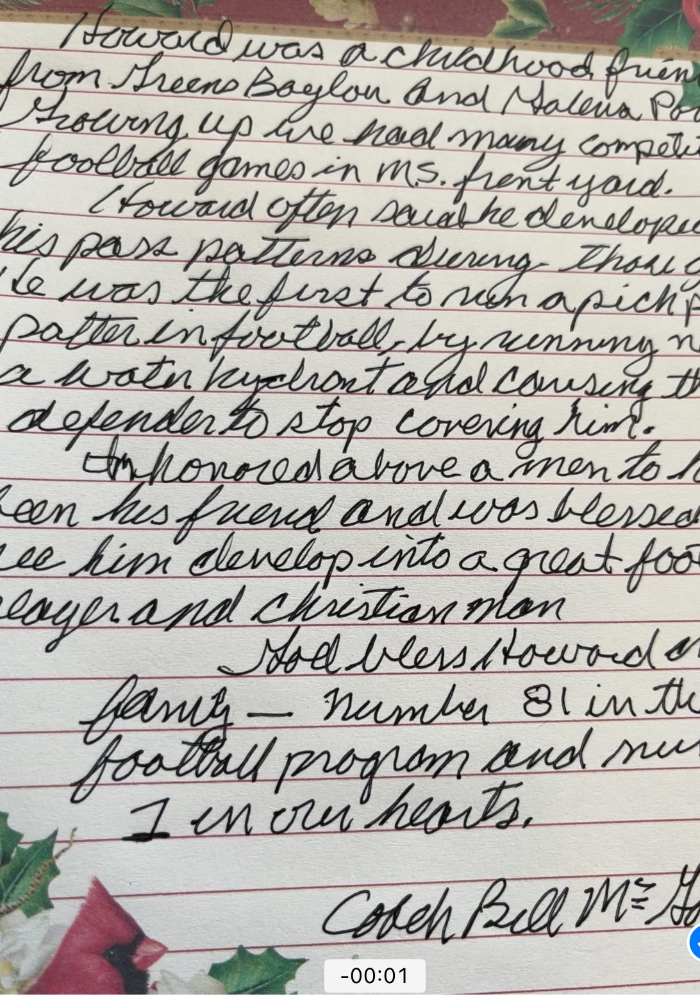 Howard was a childhood frien
from Greens Baylou and Galena Pa
Growing up we had many competit
football games in M.S. front yard.
Howard often said he developed
his pass patterns during thou g
He was the first to run a pick p
patter in football, by running n
a water hydrant and causing th
defender to stop covering him.
Im honored above a men to h
been his friend and was blessed
see him develop into a great foot
player and christian man
God bless Howard an
family — number 81 in the
football program and num
1 in our hearts.
Coach Bill Mc
-00:01